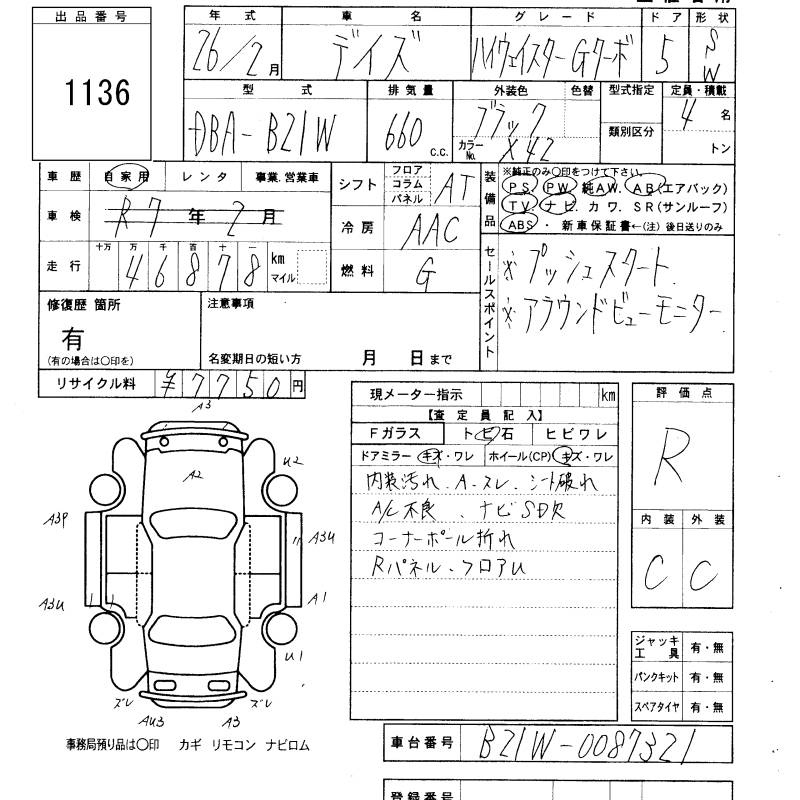 出品番号
1136
年式 車名 グレード ドア 形状
26/2月 デイズ ハイウェイスターGターボ 5 SW
型式 排気量 外装色 色替 型式指定 定員・積載
DBA-B21W 660 c.c. ブラック カラーNo. X42 類別区分 4名 トン
車歴 自家用 レンタ 事業.営業車
車検 R7年2月
走行 十万 万 千 百 十 一 km マイル
46878
シフト フロア コラム パネル AT
冷房 AAC
燃料 G
装備品 ※純正のみ○印をつけて下さい。
PS. PW. 純AW. AB(エアバック)
TV. ナビ. カワ. SR(サンルーフ)
ABS・ 新車保証書←(注)後日送りのみ
セールスポイント
※プッシュスタート.
※アラウンドビューモニター
修復歴 箇所
有
(有の場合は○印を)
注意事項
名変期日の短い方 月 日まで
リサイクル料 ¥7750円
現メーター指示 km
【査定員記入】
Fガラス トビ石 ヒビワレ
ドアミラー キズ・ワレ ホイール(CP) キズ・ワレ
内装汚れ、A・スレ、シート破れ
A/C不良、ナビSD欠
コーナーポール折れ
Rパネル・フロアU
評価点
R
内装 外装
C C
ジャッキ工具 有・無
パンクキット 有・無
スペアタイヤ 有・無
A3
A2
U2
A3P
A3U
A3U
A1
U1
ズレ ズレ
AU3 A3
事務局預り品は○印 カギ リモコン ナビロム
車台番号 B21W-0087321
登録番号